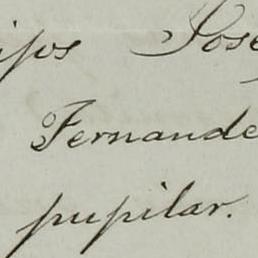 ijos José
Fernande
pupilar.